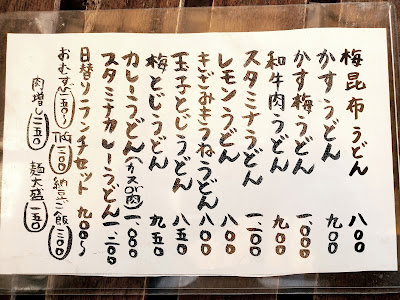 梅昆布うどん 八〇〇
かすうどん 九〇〇
かす梅うどん 一、〇〇〇
和牛肉うどん 九〇〇
スタミナうどん 一、一〇〇
レモンうどん 八〇〇
きざみきつねうどん 八〇〇
玉子とじうどん 八五〇
梅とじうどん 九五〇
カレーうどん(カスor肉) 一、〇〇〇
スタミナカレーうどん 一、二〇〇
日替りランチセット 九〇〇〜
おむすび 一五〇〜 TKG 三〇〇 納豆ご飯 三〇〇
肉増し 二五〇 麺大盛 一五〇